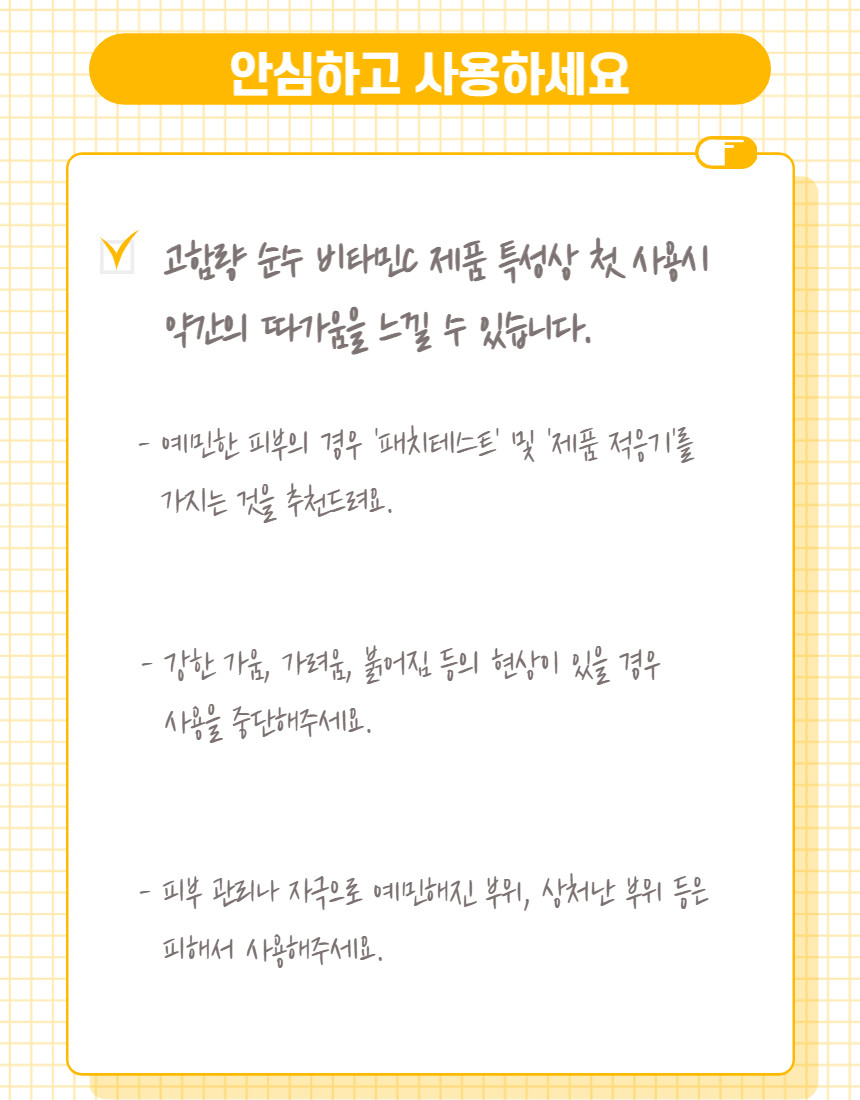 안심하고 사용하세요
고함량 순수 비타민C 제품 특성상 첫 사용시
약간의 따가움을 느낄 수 있습니다.
- 예민한 피부의 경우 '패치테스트' 및 '제품 적응기'를
가지는 것을 추천드려요.
- 강한 가움, 가려움, 붉어짐 등의 현상이 있을 경우
사용을 중단해주세요.
- 피부 관리나 자극으로 예민해진 부위, 상처난 부위 등은
피해서 사용해주세요.